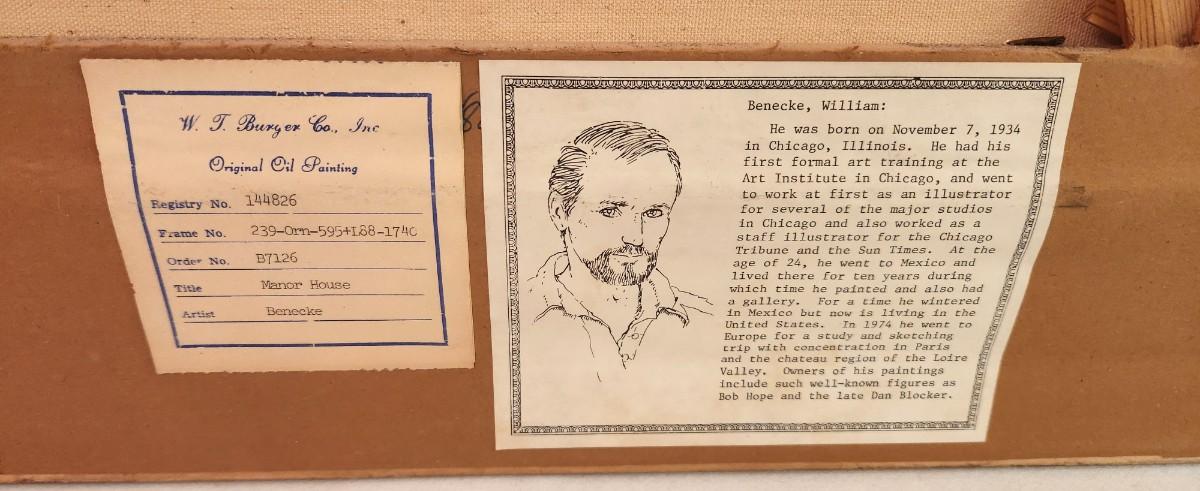 W. T. Burger Co., Inc
Original Oil Painting
Registry No. 144826
Frame No. 239-Orn-595+L88-1740
Order No. B7126
Title Manor House
Artist Benecke
Benecke, William:
He was born on November 7, 1934
in Chicago, Illinois. He had his
first formal art training at the
Art Institute in Chicago, and went
to work at first as an illustrator
for several of the major studios
in Chicago and also worked as a
staff illustrator for the Chicago
Tribune and the Sun Times. At the
age of 24, he went to Mexico and
lived there for ten years during
which time he painted and also had
a gallery. For a time he wintered
in Mexico but now is living in the
United States. In 1974 he went to
Europe for a study and sketching
trip with concentration in Paris
and the chateau region of the Loire
Valley. Owners of his paintings
include such well-known figures as
Bob Hope and the late Dan Blocker.